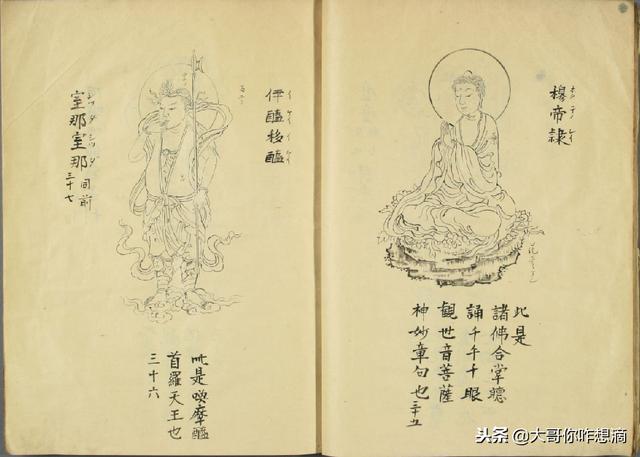 穆帝隸
此是
諸佛合掌聽
誦千手千眼
觀世音菩薩
神妙章句也 三十五
伊醯移醯
此是喚摩醯
首羅天王也
三十六
室那室那 同前
三十七
头条 @大哥你咋想滴